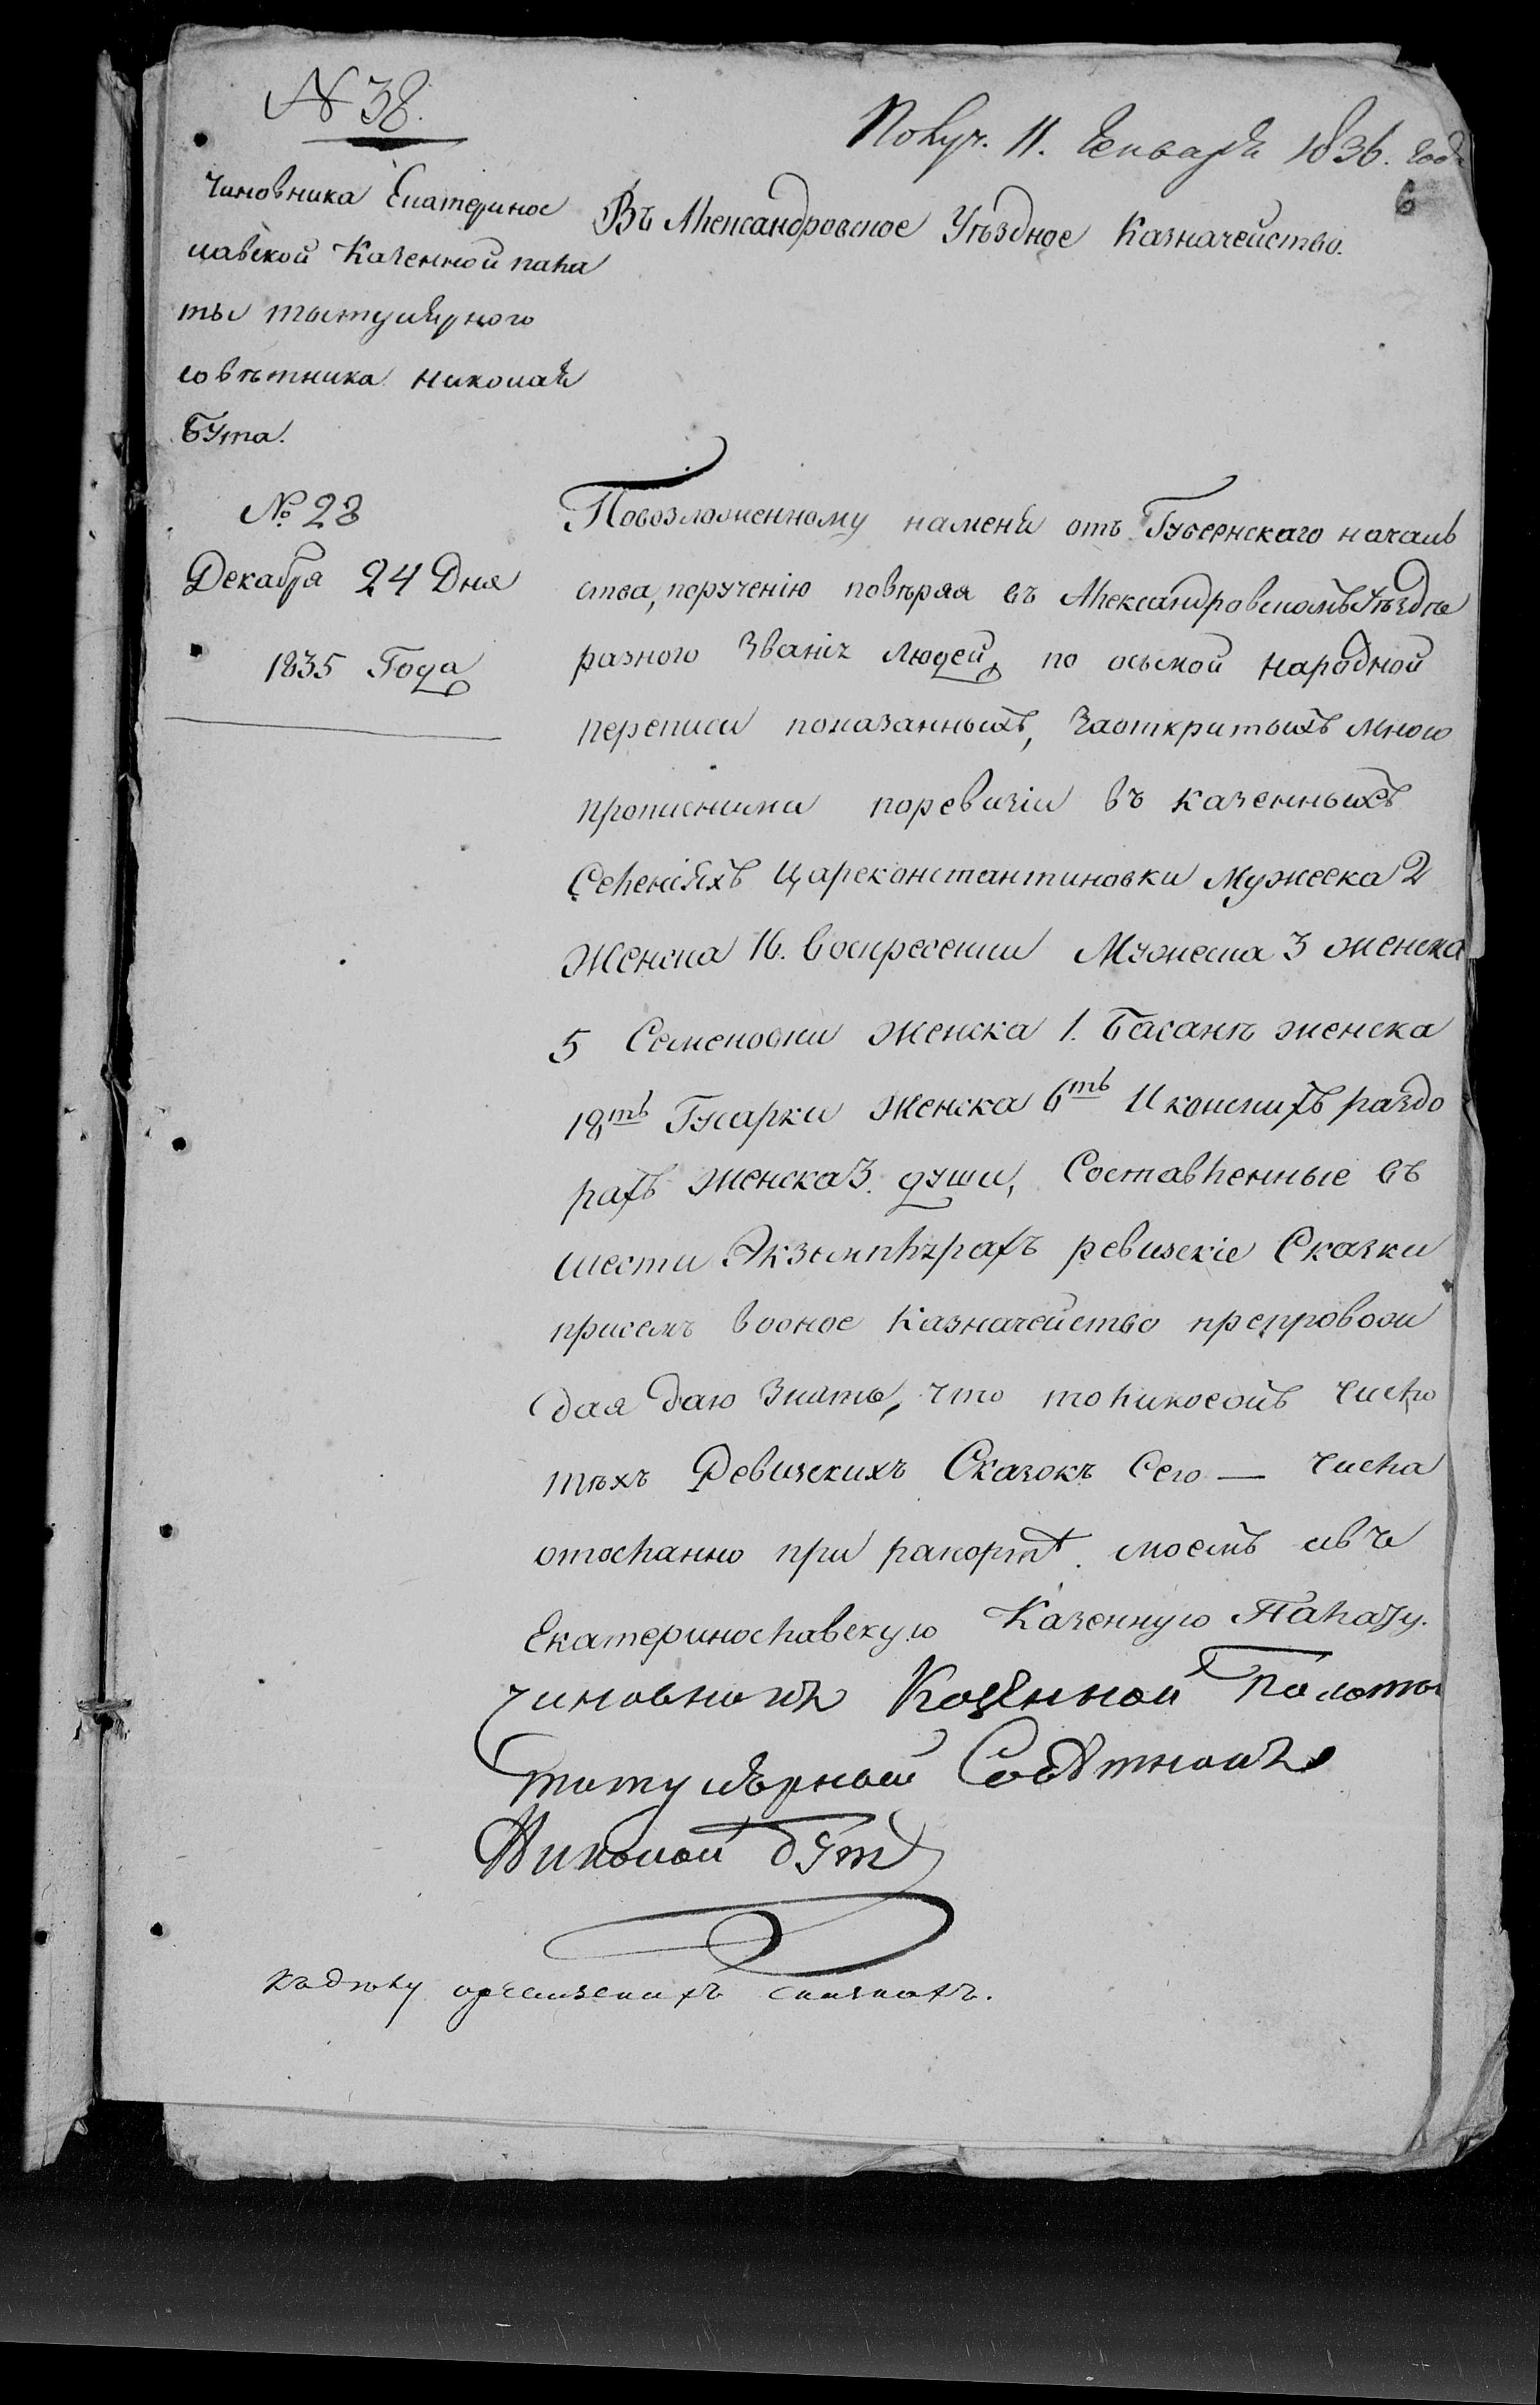 N 38.
Получ. 11. Генваря 1836. года
6
Чиновника Екатеринос
лавской Казенной пала
ты титулярного
советника Николая
Бута.
№ 28
Декабря 24 Дня
1835 Года
Въ Александровское Уѣздное Казначейство.
Повозложенному наменя отъ Губернскаго началь
ства, порученію повѣряя въ Александровскомъ Уѣздѣ
разного Званія людей, по осьмой народной
переписи показанныхъ, Заоткритыхъ мною
прописними поревизіи въ казенныхъ
Селеніяхъ Цареконстантиновки Мужеска 2
Женска 16. Воскресенки Мужеска 3 женска
5 Семеновки Женска 1. Басанѣ женска
18ть Гусарки Женска 6ть И конскихъ раздо
рахъ женска 3. души, Составленные въ
шести Экземплярахъ ревизскіе Сказки
присемъ воное Казначейство препровож
дая даю Знать, что толикоежъ число
тѣхъ Ревизскихъ Сказокъ Сего — числа
отосланно при рапортѣ моемъ и въ
Екатеринославскую Казенную Палату.
Чиновникъ Казенной Палаты
Титулярный Совѣтникъ
Николай Бутъ
къ дѣлу о ревизскихъ сказкахъ.